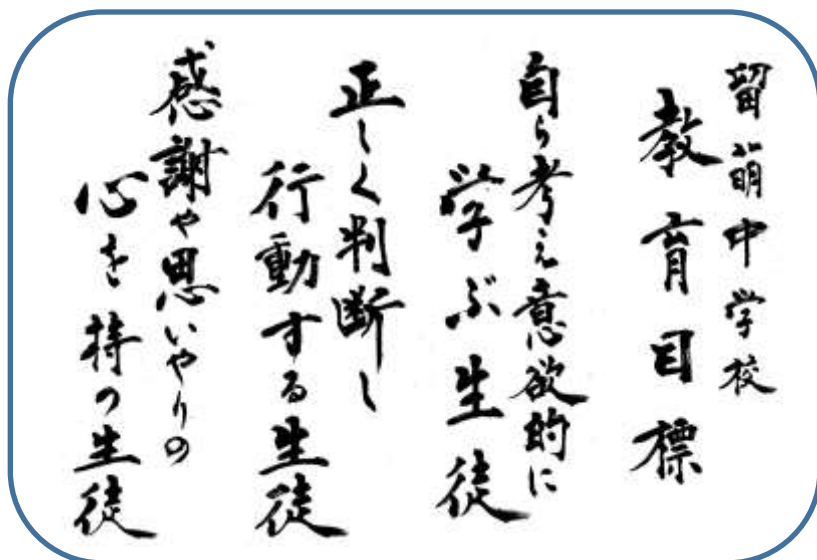 留萌中学校
教育目標
自ら考え意欲的に
学ぶ生徒
正しく判断し
行動する生徒
感謝や思いやりの
心を持つ生徒